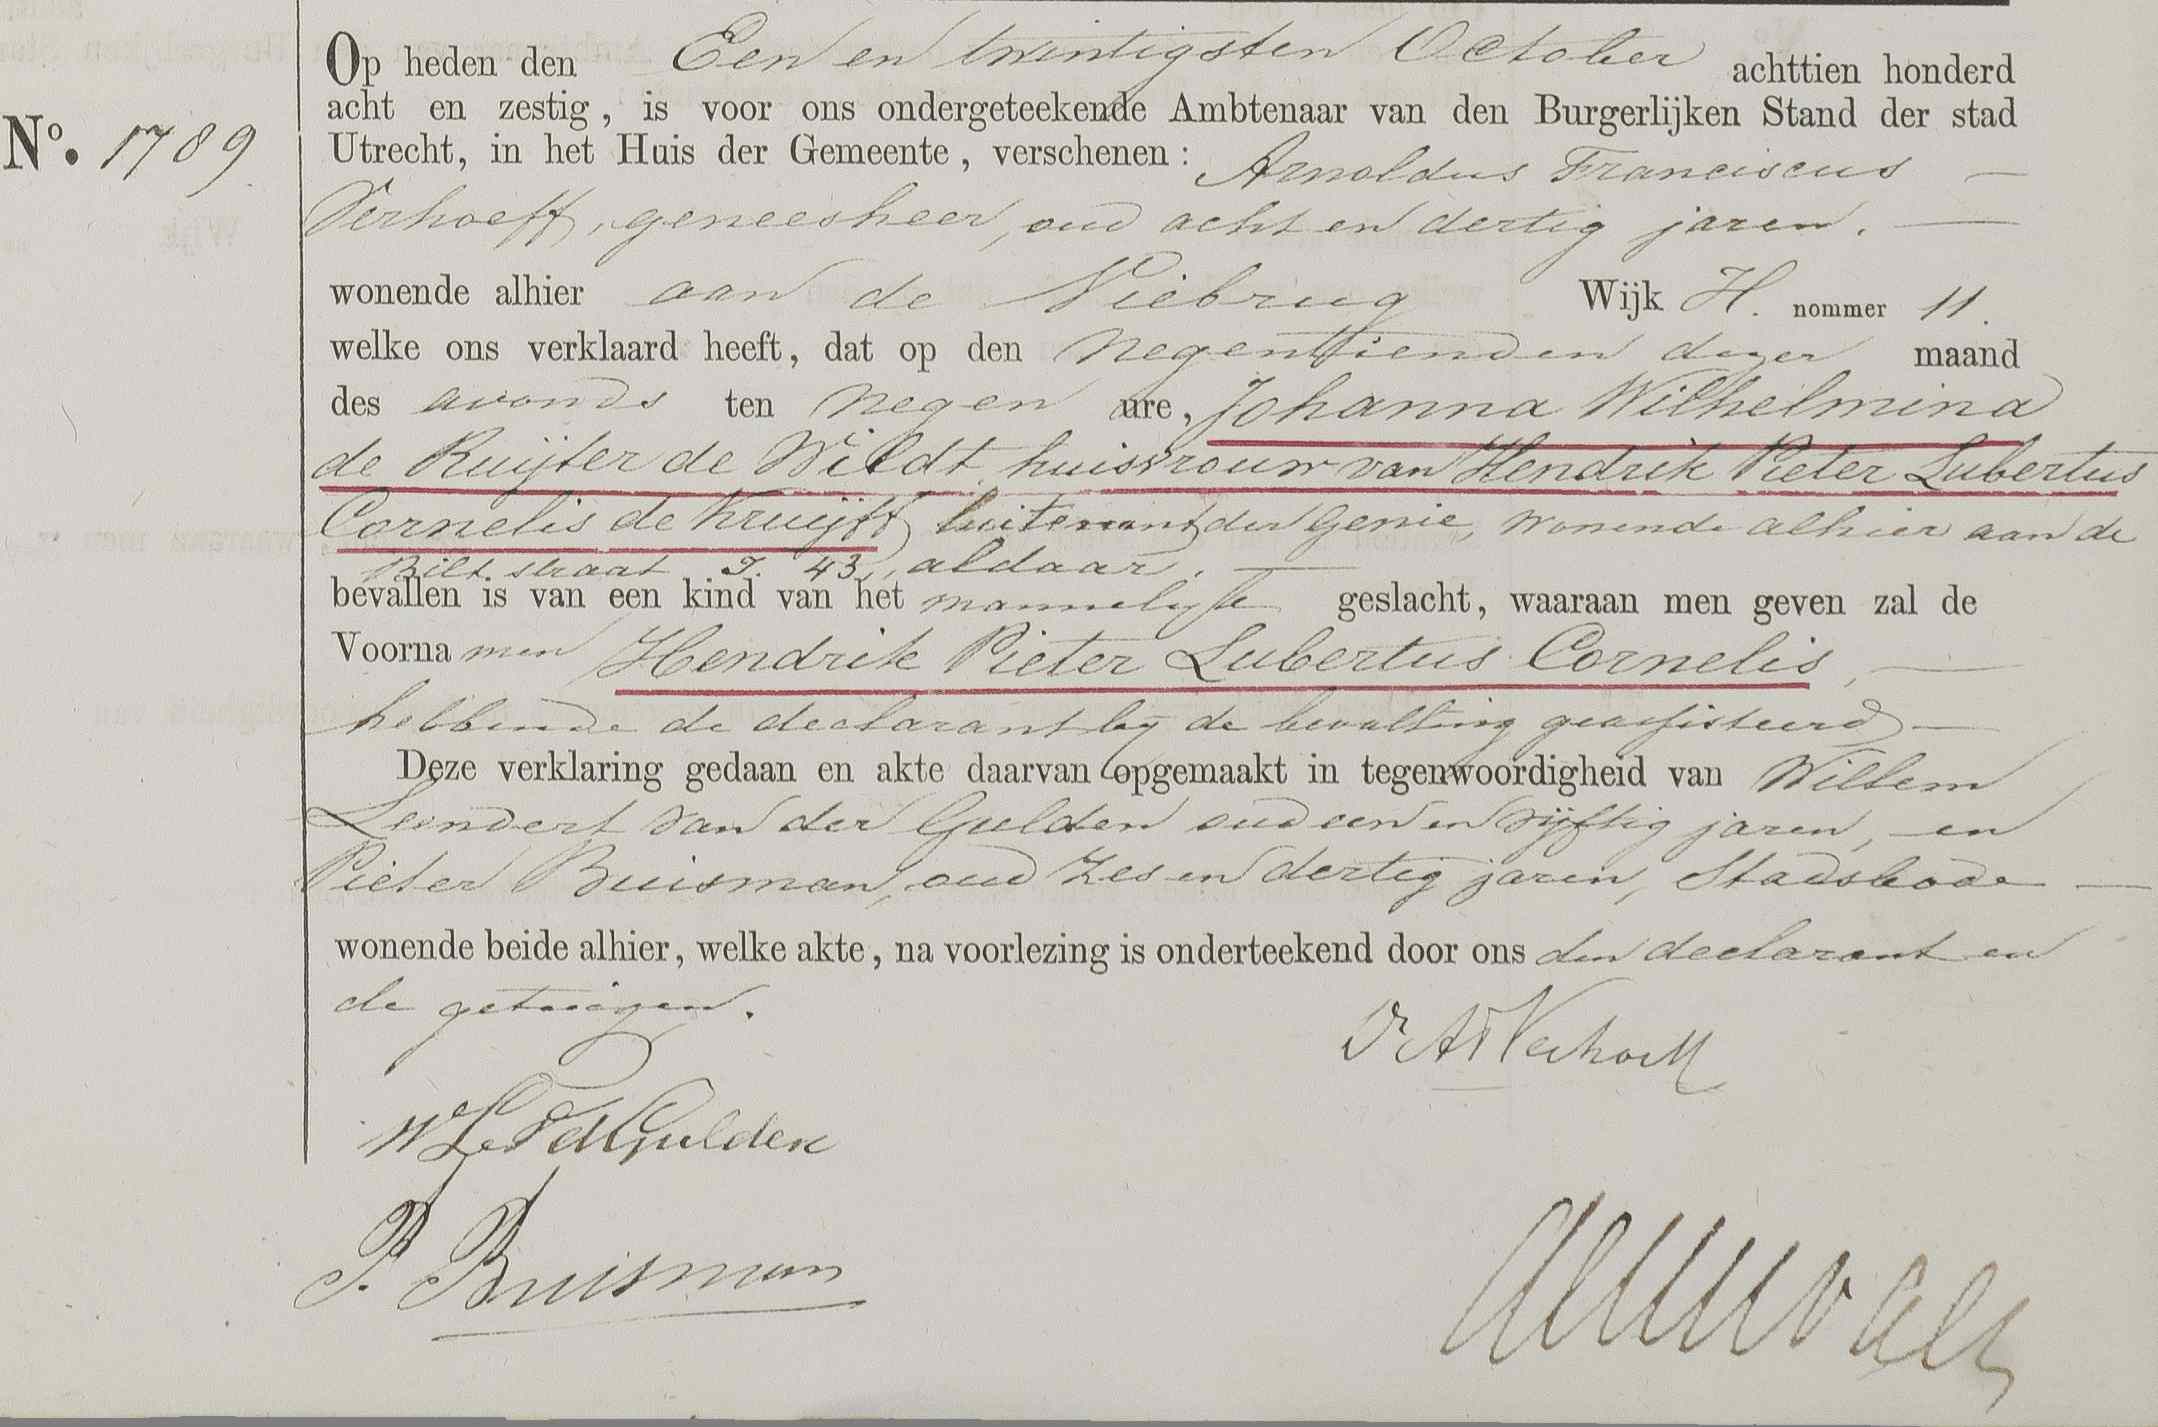 Op heden den Een en twintigsten October achttien honderd
acht en zestig, is voor ons ondergeteekende Ambtenaar van den Burgerlijken Stand der stad
No. 1789
Utrecht, in het Huis der Gemeente, verschenen: Arnoldus Franciscus —
Verhoeff, geneesheer, oud acht en dertig jaren. —
wonende alhier aan de Viebrug Wijk H. nommer 11.
welke ons verklaard heeft, dat op den negentienden dezer maand
des avonds ten negen ure, Johanna Wilhelmina
de Ruijter de Wildt, huisvrouw van Hendrik Pieter Lubertus
Cornelis de Kruijff, luitenant der Genie, wonende alhier aan de
Bilt straat I. 43, aldaar. —
bevallen is van een kind van het mannelijke geslacht, waaraan men geven zal de
Voornamen Hendrik Pieter Lubertus Cornelis, —
hebbende de declarant bij de bevalling geassisteerd —
Deze verklaring gedaan en akte daarvan opgemaakt in tegenwoordigheid van Willem
Leendert van der Gulden oud een en vijftig jaren, en
Pieter Buisman, oud zes en dertig jaren, Stadsbode —
wonende beide alhier, welke akte, na voorlezing is onderteekend door ons den declarant en
de getuigen.
Dr AF Verhoeff
WL vd Gulden
P. Buisman